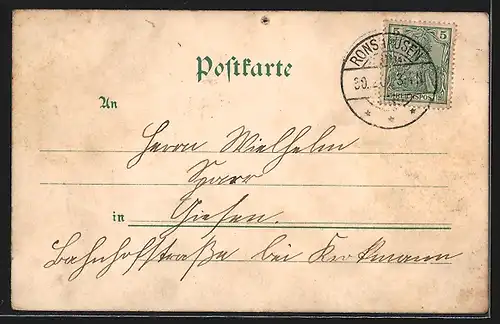 Postkarte
RONSHAUSEN
5 5
30.
3-4N
REICHSPOST
An
Herrn Wielhelm
Sparr
in Giesen.
Bahnhofstraße bei Kirkmann